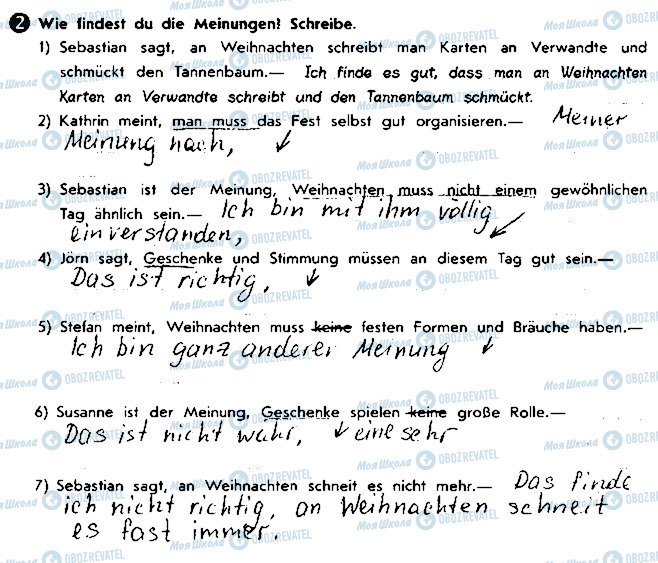 2 Wie findest du die Meinungen? Schreibe.
1) Sebastian sagt, an Weihnachten schreibt man Karten an Verwandte und
schmückt den Tannenbaum.— Ich finde es gut, dass man an Weihnachten
Karten an Verwandte schreibt und den Tannenbaum schmückt.
2) Kathrin meint, man muss das Fest selbst gut organisieren.— Meiner
Meinung nach,
3) Sebastian ist der Meinung, Weihnachten muss nicht einem gewöhnlichen
Tag ähnlich sein.— Ich bin mit ihm völlig
einverstanden,
4) Jörn sagt, Geschenke und Stimmung müssen an diesem Tag gut sein.—
Das ist richtig,
5) Stefan meint, Weihnachten muss keine festen Formen und Bräuche haben.—
Ich bin ganz anderer Meinung
6) Susanne ist der Meinung, Geschenke spielen keine große Rolle.—
Das ist nicht wahr, eine sehr
7) Sebastian sagt, an Weihnachten schneit es nicht mehr.— Das finde
ich nicht richtig, an Weihnachten schneit
es fast immer.